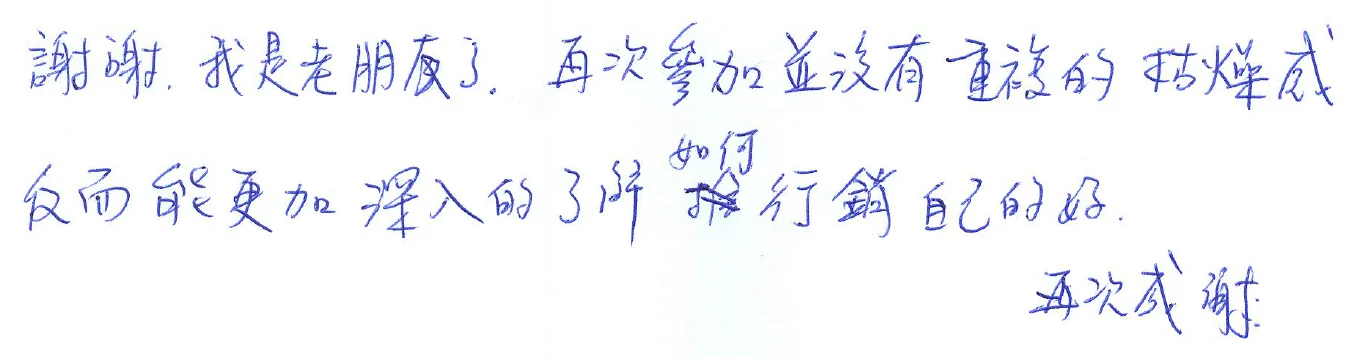 謝謝. 我是老朋友了. 再次參加並沒有重複的枯燥感
反而能更加深入的了解如何行銷自己的好.
再次感謝.